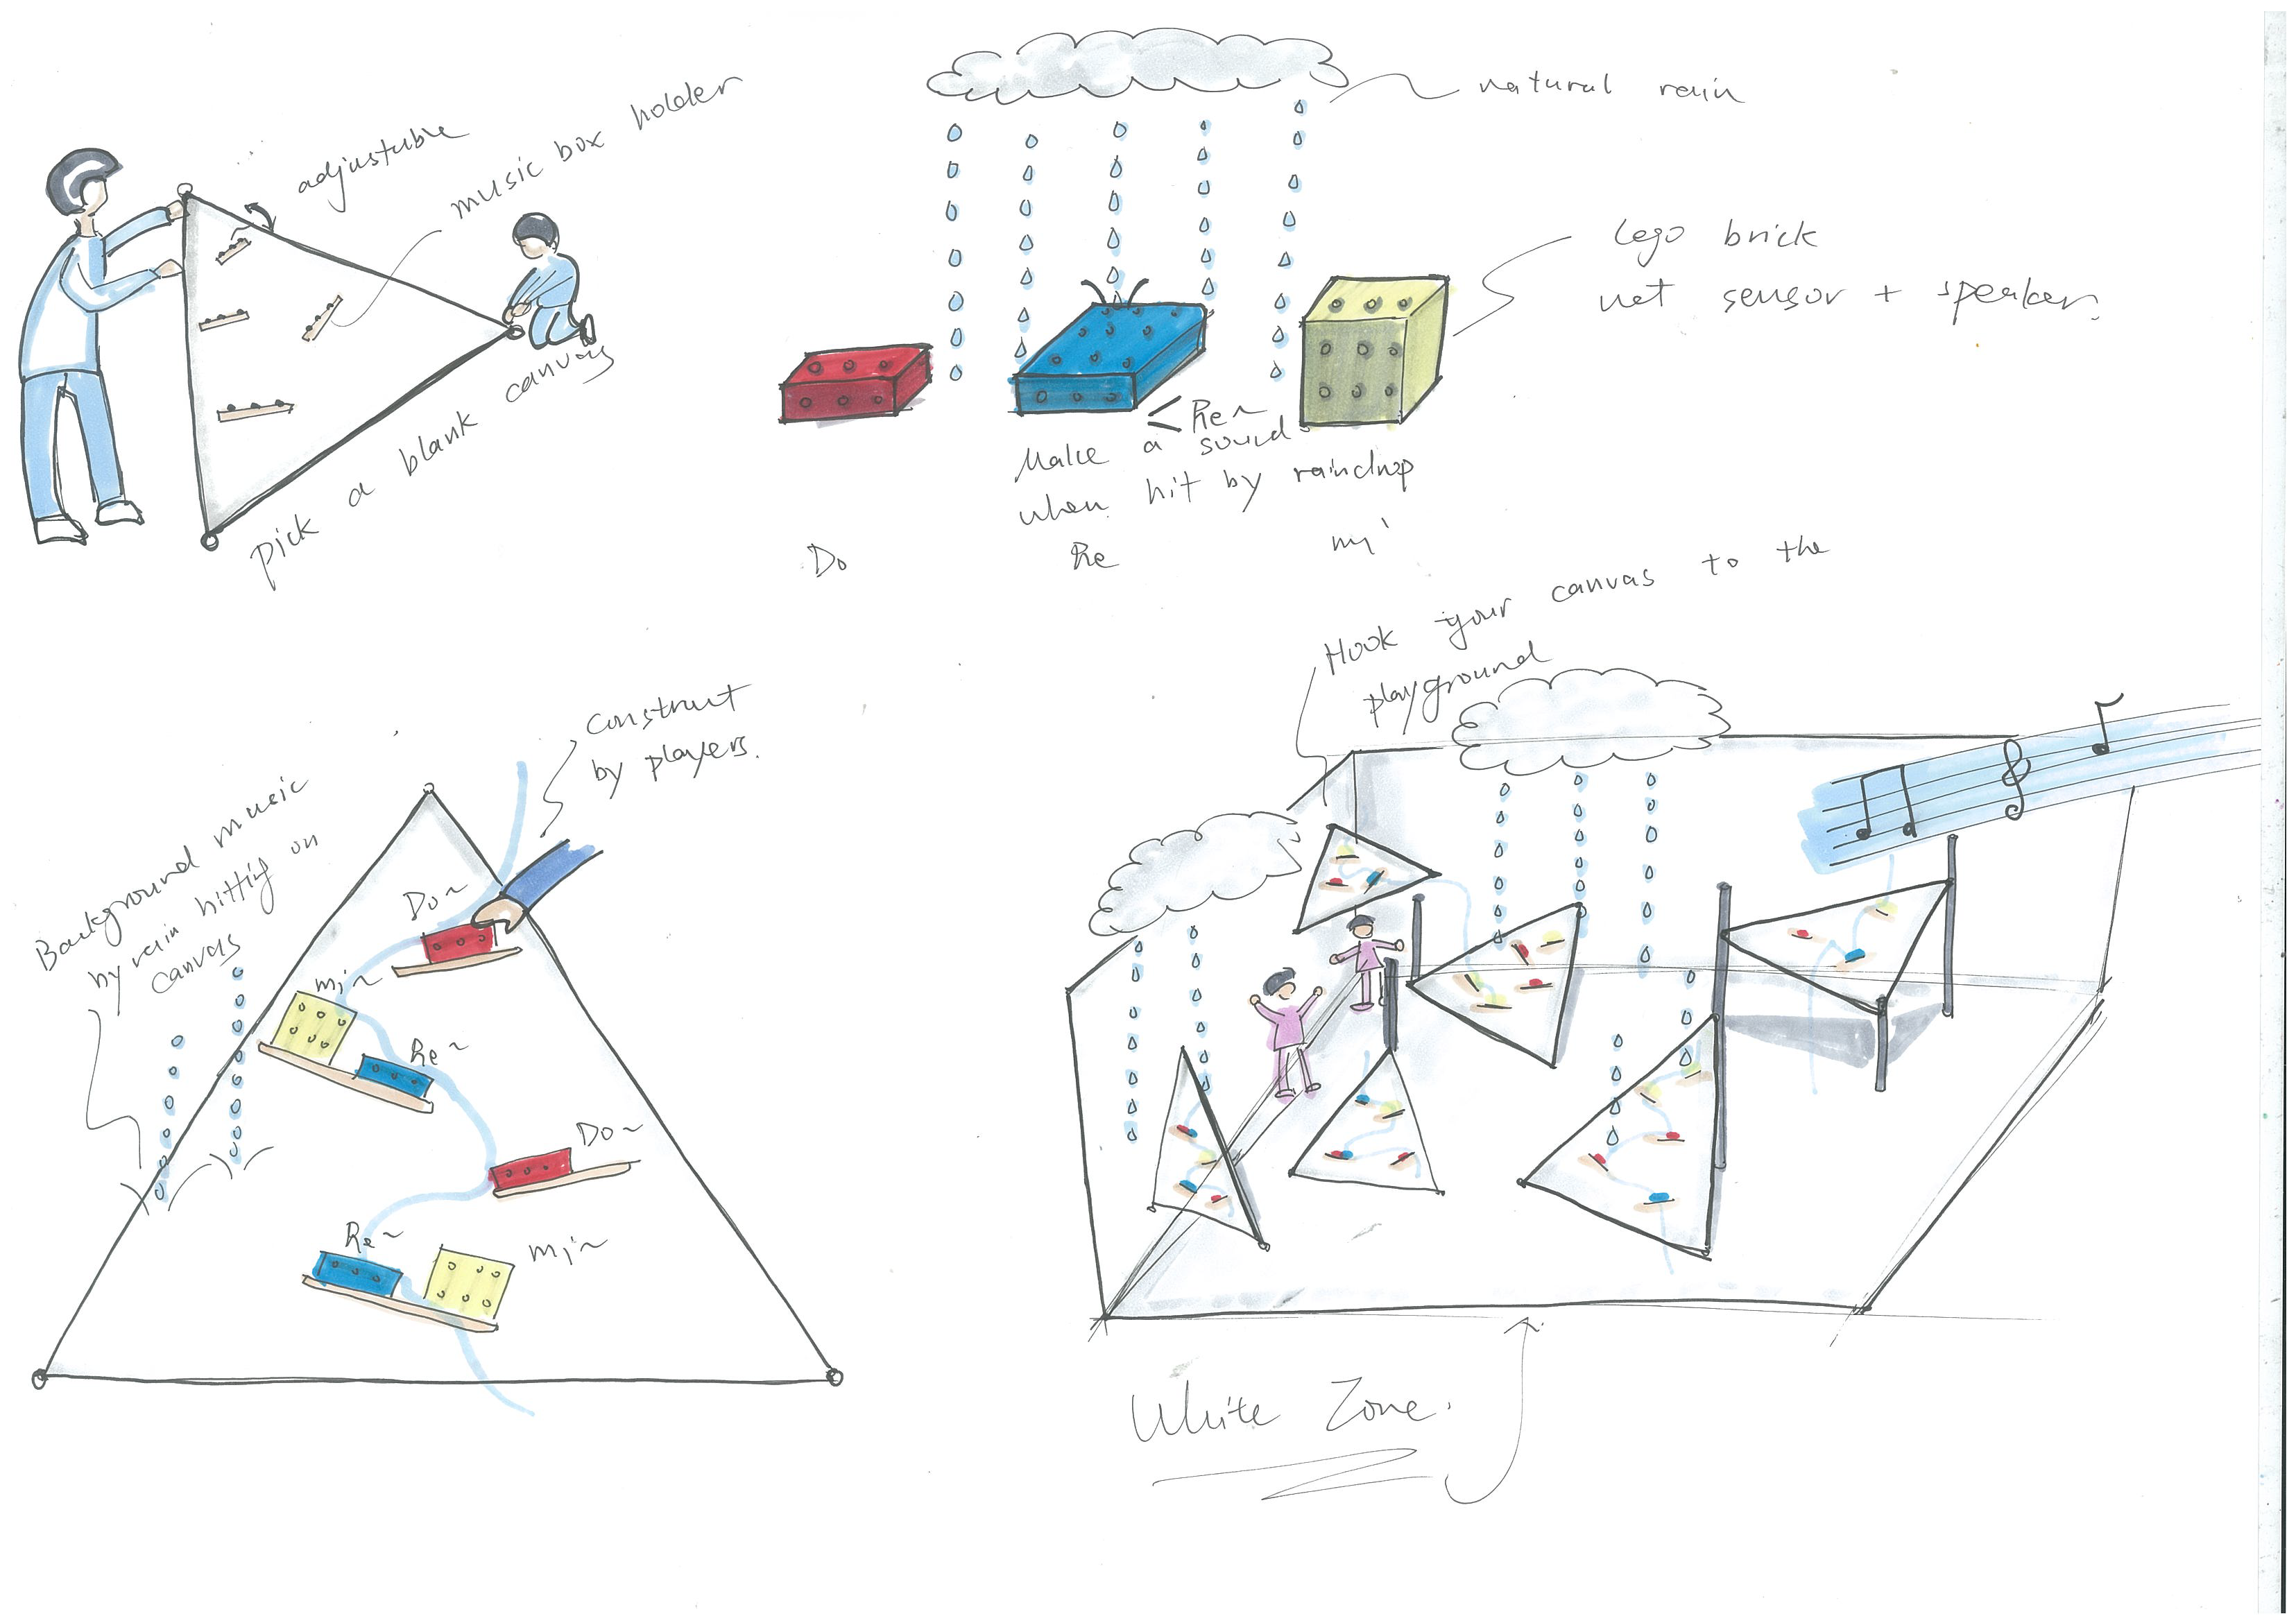 adjustable
music box holder
pick a blank canvas
natural rain
Lego brick
wet sensor + speaker.
Re~
Make a sound
when hit by raindrop
Do
Re
mi
Construct
by players.
Background music
by rain hittig on
canvas
Do~
mi~
Re~
Do~
Re~
mi~
Hook your canvas to the
playground
White Zone.